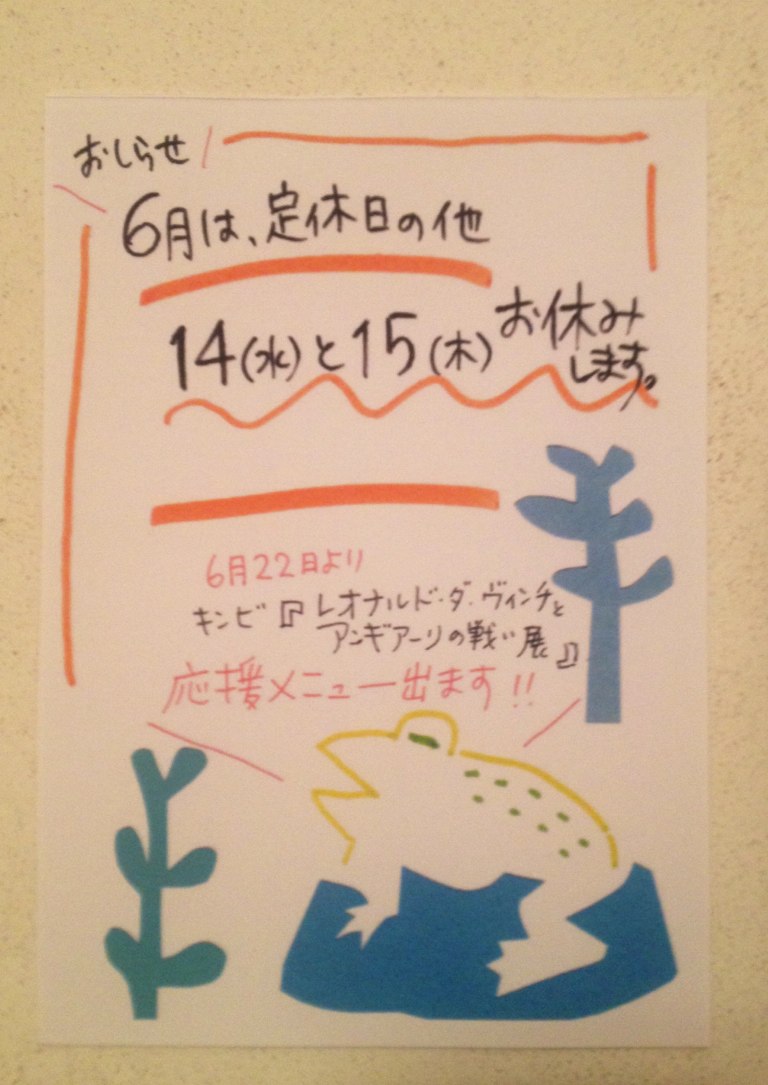 おしらせ
6月は、定休日の他
14(水)と15(木)お休み
します。
6月22日より
キンビ『レオナルド・ダ・ヴィンチと
アンギアーリの戦い展』
応援メニュー出ます!!